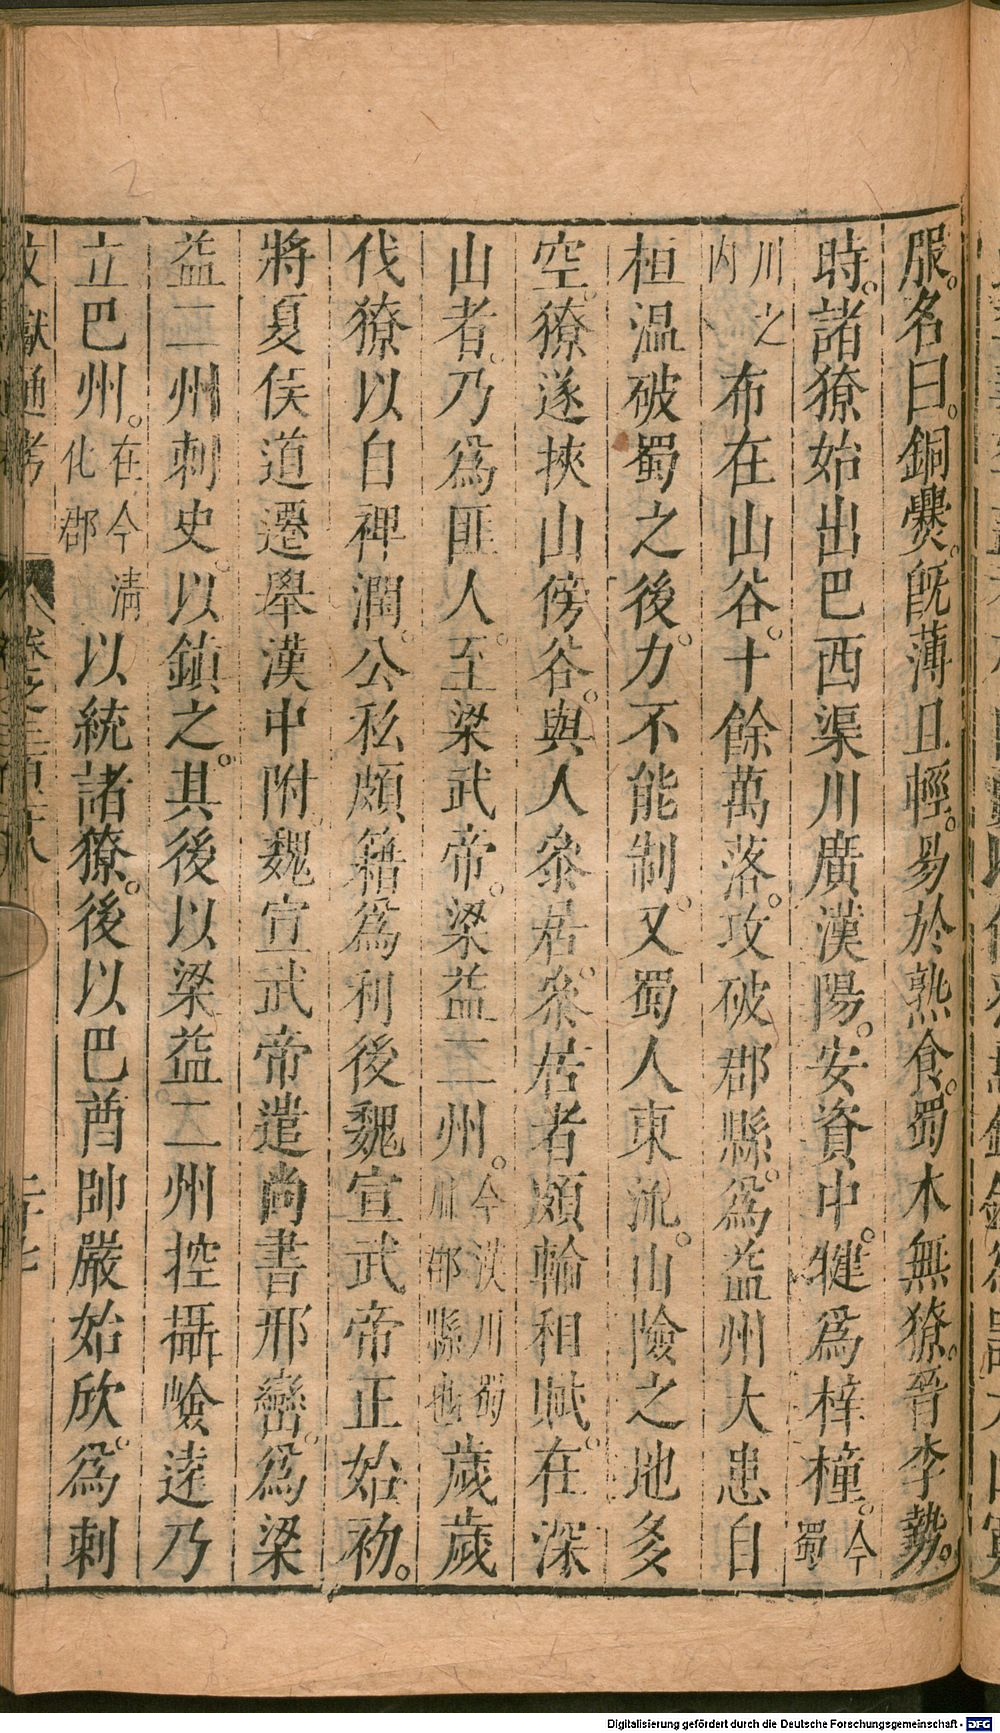 服。名曰。銅爨。旣薄且輕。易於熟食。蜀本無獠。晉李勢。
時。諸獠始出巴西渠川廣漢陽。安資中。犍爲梓橦。今蜀
川之内布在山谷。十餘萬落。攻破郡縣。爲益州大患自
桓温破蜀之後。力不能制。又蜀人東流。山險之地多
空。獠遂挾山傍谷。與人叅居。叅居者頗輸租賦。在深
山者。乃爲匪人。至梁武帝。梁益二州。今漢川蜀川郡縣也歲歲
伐獠以自裨潤。公私頗籍爲利後魏宣武帝正始初。
將夏侯道遷舉漢中附魏宣武帝遣尚書邢巒。爲梁
益二州刺史。以鎮之。其後以梁益二州控攝嶮逺乃
立巴州。在今清化郡以統諸獠。後以巴酋帥嚴始欣。爲刺
文獻通考 卷之三百二十八 二十七
Digitalisierung gefördert durch die Deutsche Forschungsgemeinschaft - DFG